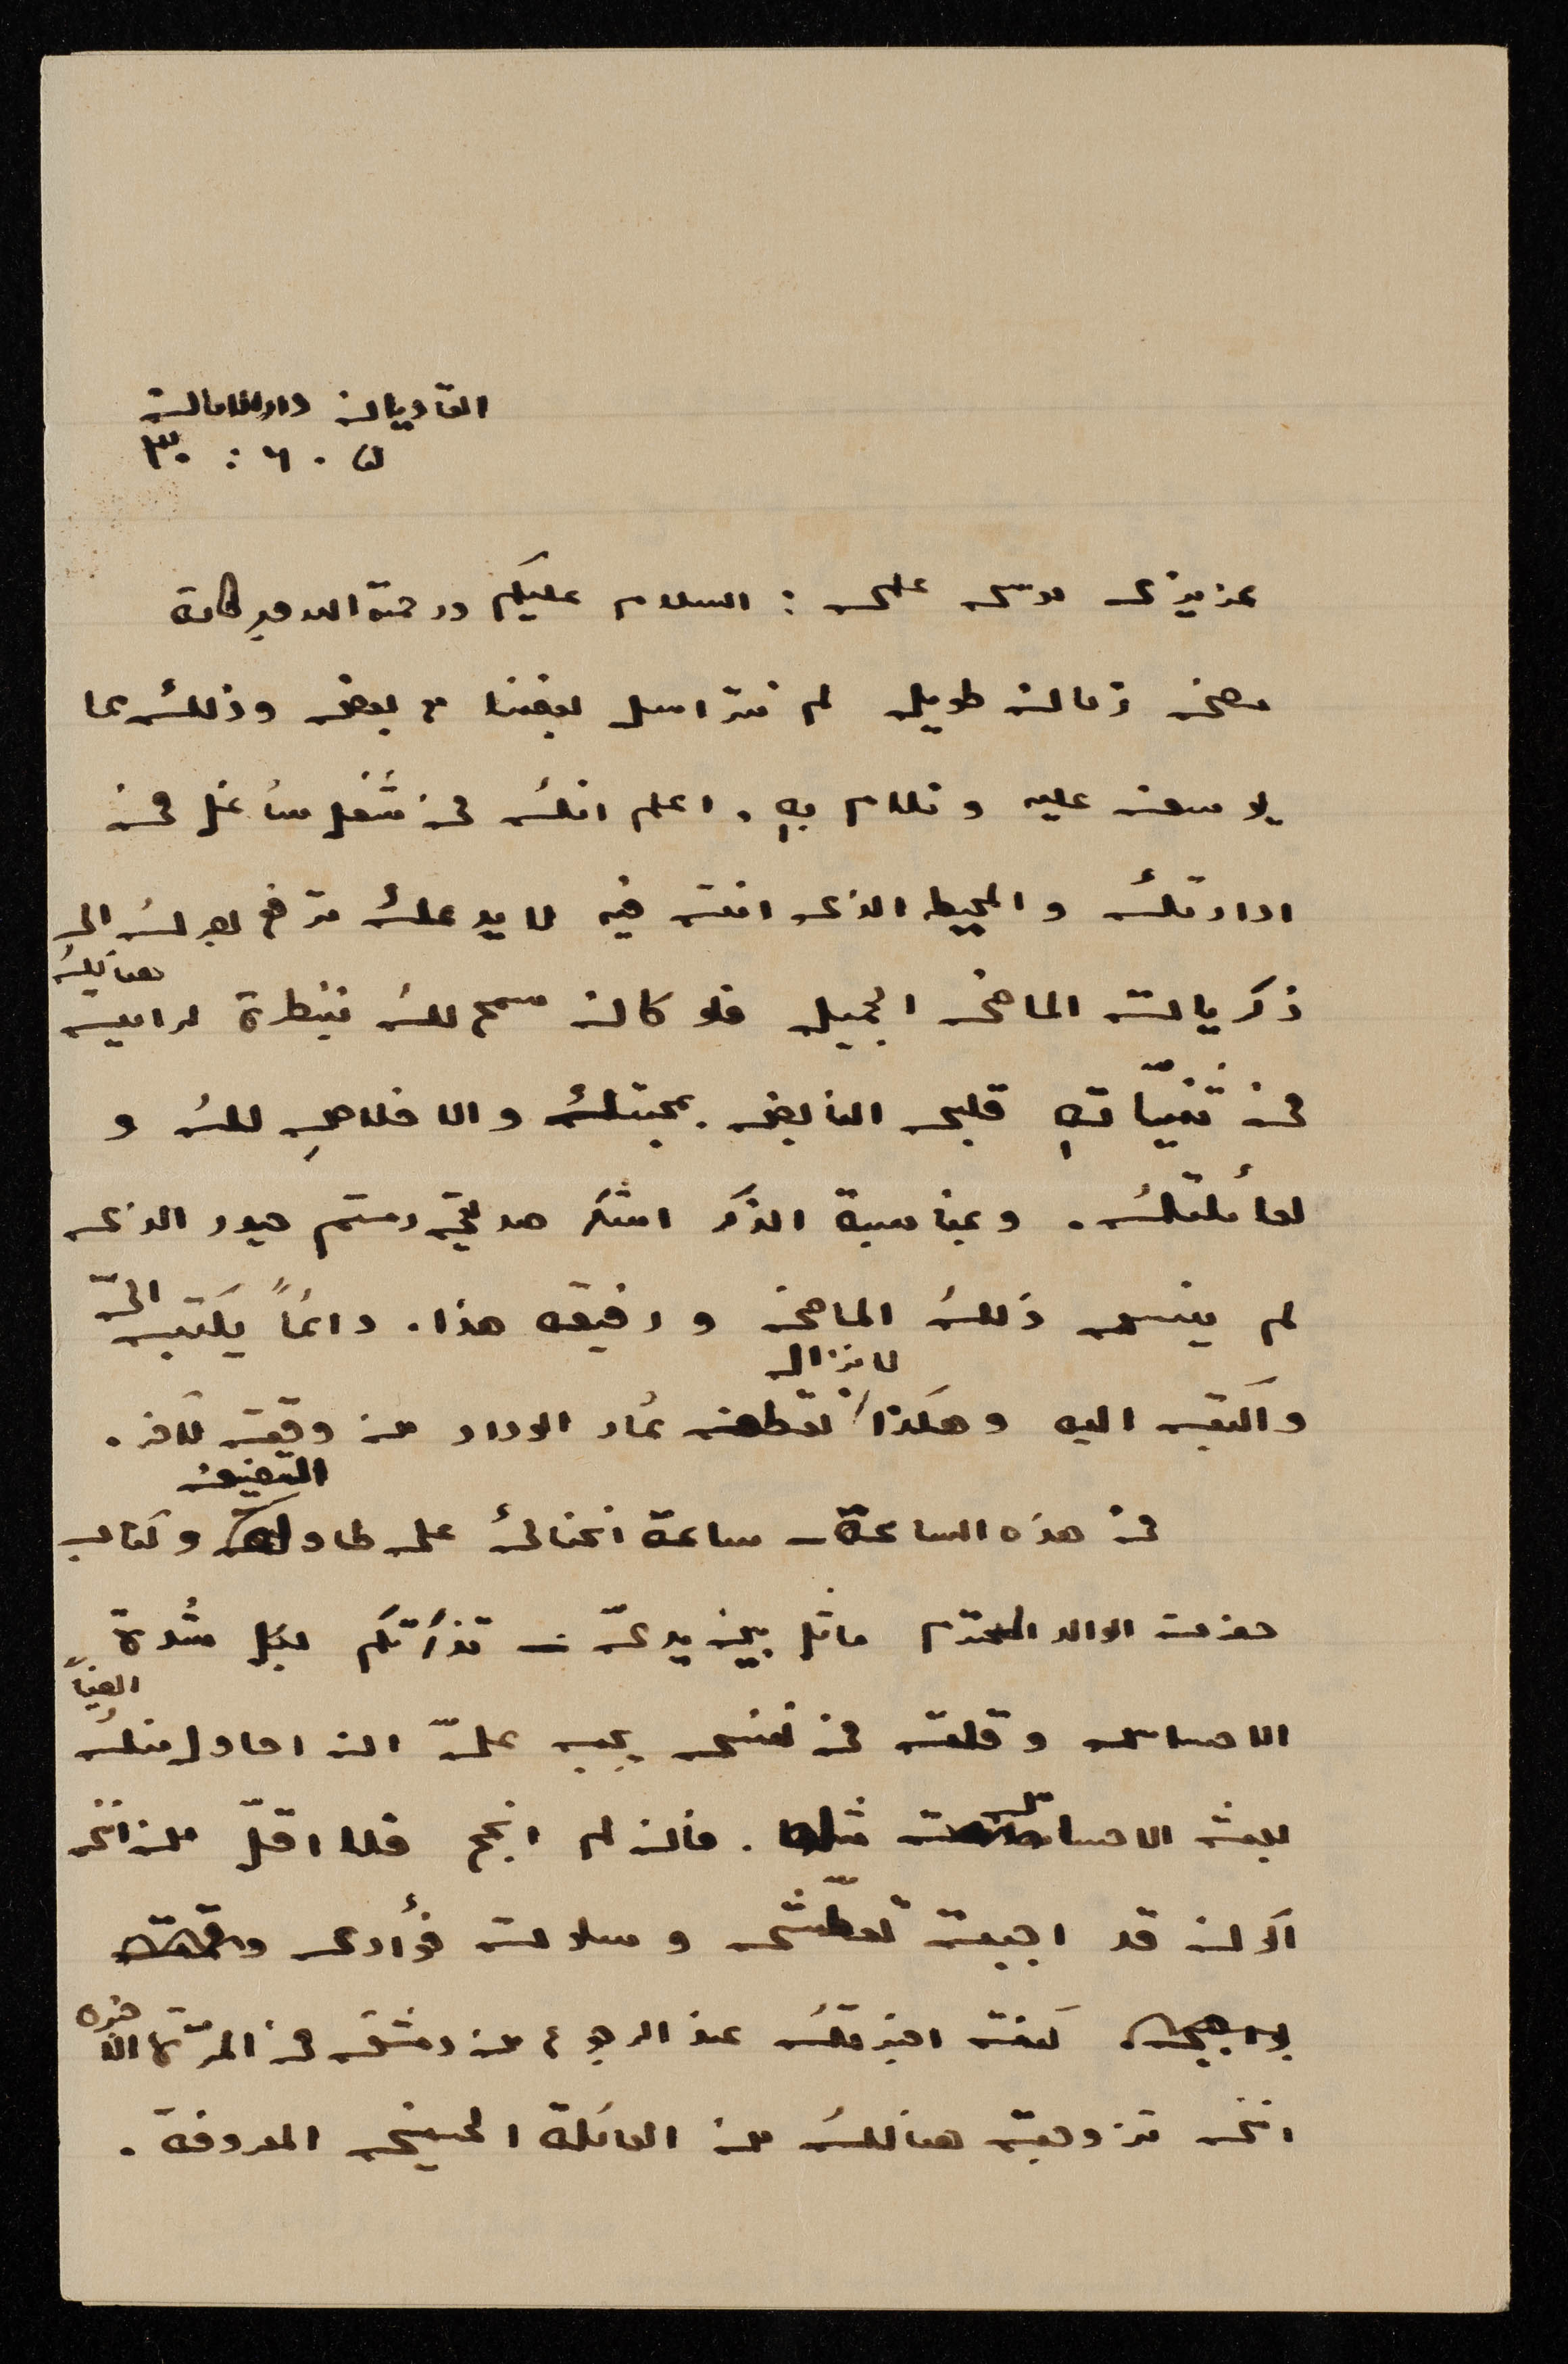 القاديان دار الامان
٥ . ٦ : ٣٠
عزيزى موسى على : السلام عليكم ورحمة الله وبركاته
مضى زمان طويل لم نتراسل بعضنا مع بعض وذلك مما
يؤسف عليه ونلام به . اعلم انك فى شغل شاغل فى
ادارتك والمحيط الذى انت فيه لا يدعك ترفع بصرك الى
ذكريات الماضى الجميل فلو كان سمح لك بنظرة لرأيت هنالك
فى ثنيّات قلبى النابض بمحبتك والاخلاص لك و
لعائلتك . وبمناسبة الذكر اشكر صديقى رستم حيدر الذى
لم ينسى ذلك الماضى ورفيقه هذا . دائماً يكتب الىّ
واكتب اليه وهكذا لا نزال نقطف ثمار الوداد من وقت لآخر .
فى هذه الساعة – ساعة انحنائى على طاولة التصنيف وكتاب
حضرت الوالد المحترم ماثل بين يدىّ – تذكرتكم بكل شدة
الاحساس وقلت فى نفسى يجب علىّ ان احاول منك ايضاً
بعث الاحساس مثله . فان لم انجح فلا اقلّ من انى
اكون قد اجبت تعطّشى وسلوت فؤادى وقمت
بواجبى . كنت اخبرتك عند الرجوع من دمشق فى المرّة الاخيرة
انى تزوجت هنالك من العائلة الحسينى المعروفة .